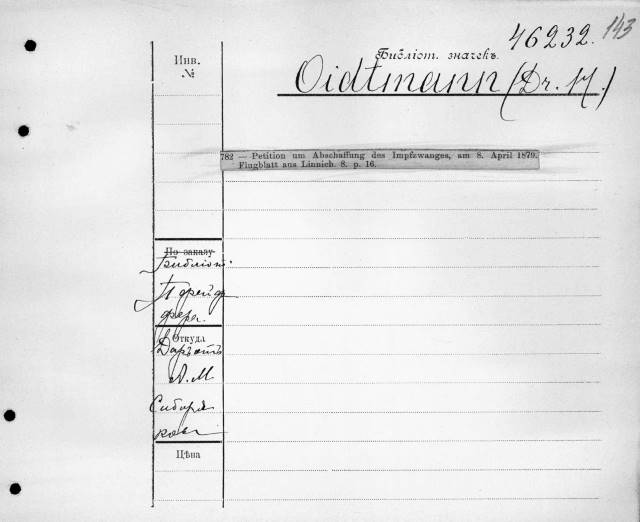 46232. 143
Инв.
№
Библіот. значекъ
Oidtmann (Dr. H.)
782 — Petition um Abschaffung des Impfzwanges, am 8. April 1879.
Flugblatt aus Linnich. 8. p. 16.
По заказу
Библіот.
Пфейф
фера.
Откуда
Даръ отъ
А. М
Сибиря
кова
Цѣна